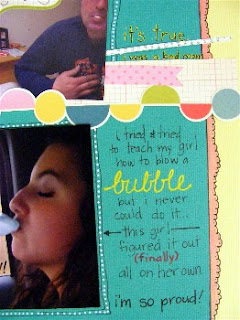 it's true
i was a bad mom
i tried & tried
to teach my girl
how to blow a
bubble
but i never
could do it...
this girl
figured it out
(finally)
all on her own
i'm so proud!